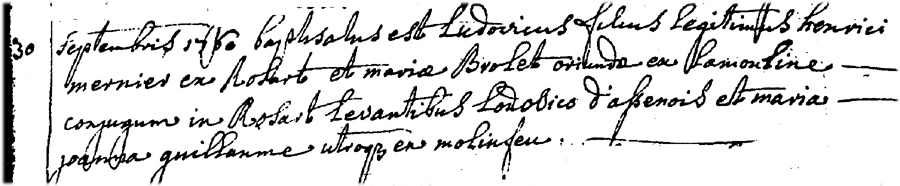 30 Septembris 1760 baptisatus est Ludovicus filius legitimus henrici
mernier ex Rosart et mariæ Brolet oriundæ ex Lamouline
conjugum in Rosart Levantibus Lodovico d'assenois et maria
joanna guillaume utroq3 ex molinfeu.